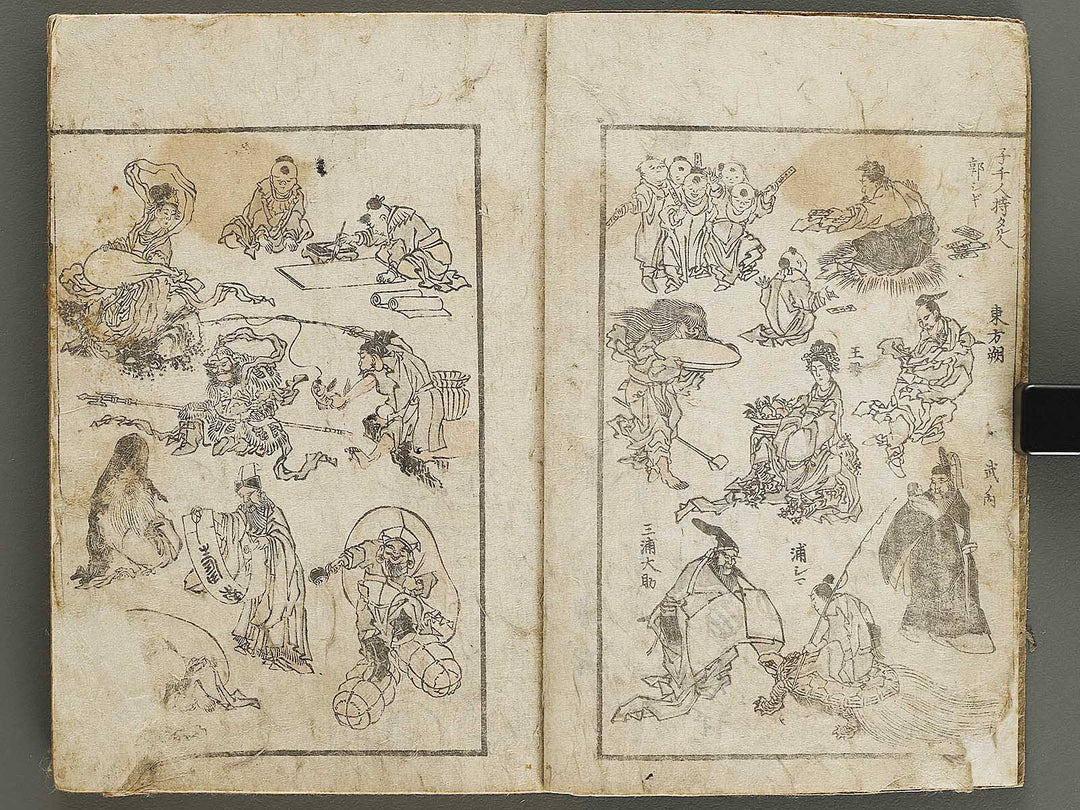 子千人持タル人
郭シギ
東方朔
王母
武内
浦シマ
三浦大助